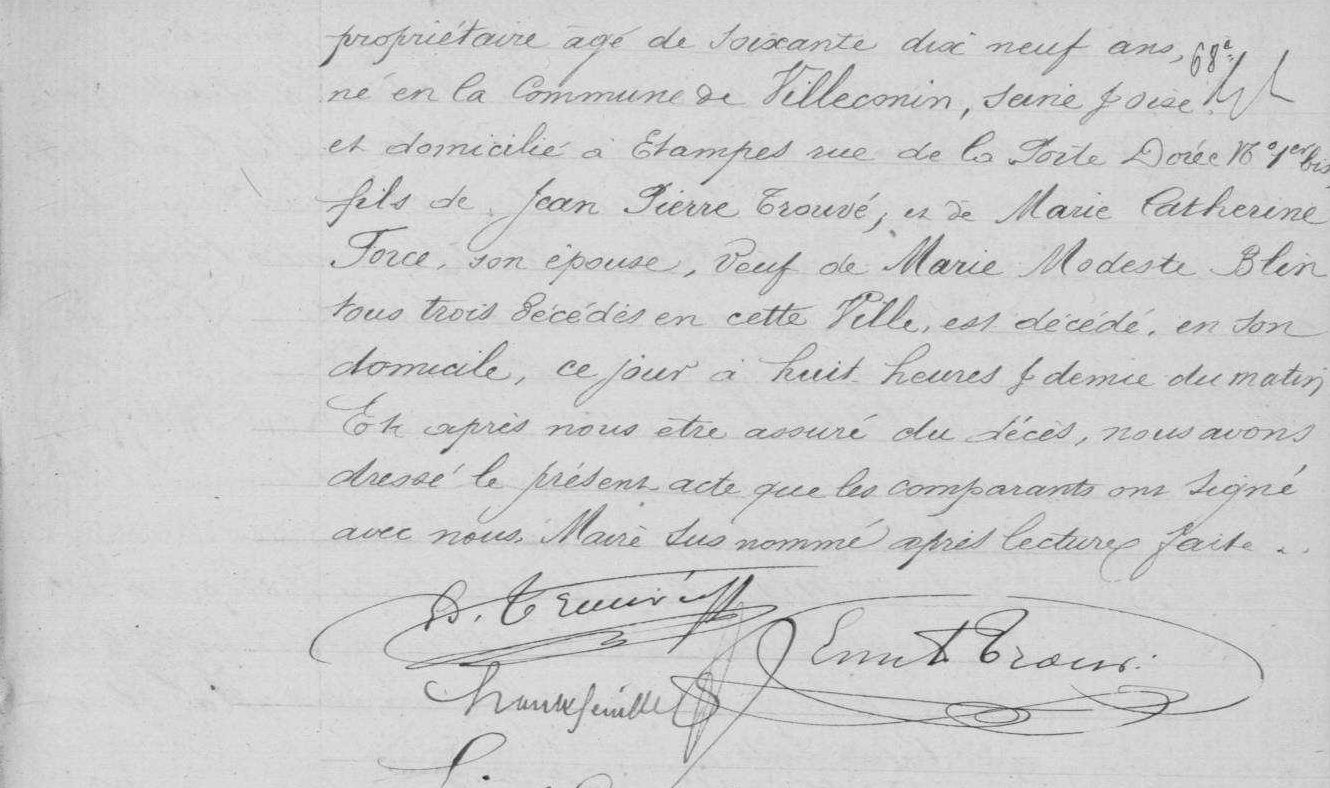 propriétaire âgé de soixante dix neuf ans,
68e
né en la Commune de Villeconin, Seine & Oise
et domicilié à Etampes rue de la Porte Dorée No 1er bis,
fils de Jean Pierre Trouvé, et de Marie Catherine
Force, son épouse, Veuf de Marie Modeste Blin
tous trois décédés en cette Ville, est décédé, en son
domicile, ce jour à huit heures & demie du matin,
Et après nous être assuré du décès, nous avons
dressé le présent acte que les comparants ont signé
avec nous, Maire sus nommé après lecture faite.
Trouvé
Trouvé